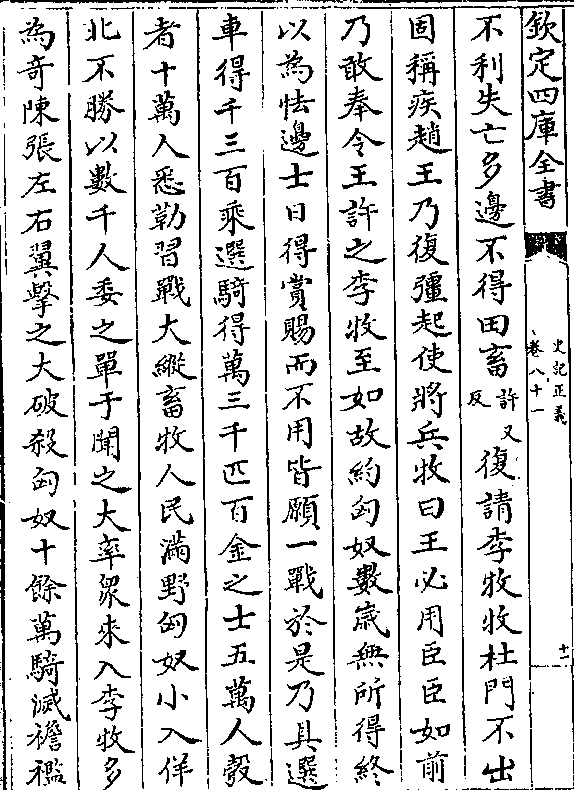 欽定四庫全書
史記正義
卷八十一
十二
不利失亡多邊不得田畜許又反復請李牧牧杜門不出
固稱疾趙王乃復彊起使將兵牧曰王必用臣臣如前
乃敢奉令王許之李牧至如故約匈奴數歲無所得終
以為怯邊士日得賞賜而不用皆願一戰於是乃具選
車得千三百乘選騎得萬三千匹百金之士五萬人彀
者十萬人悉勒習戰大縱畜牧人民滿野匈奴小入佯
北不勝以數千人委之單于聞之大率眾來入李牧多
為奇陳張左右翼擊之大破殺匈奴十餘萬騎滅襜襤